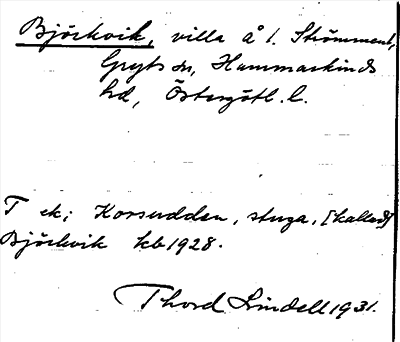 Björkvik, villa å l. Strömment,
Gryts sn, Hammarkinds
hd, Östergötl. l.
T ek; Korsudden, stuga, [kallad]
Björkvik kb 1928.
Thord Lindell 1931.